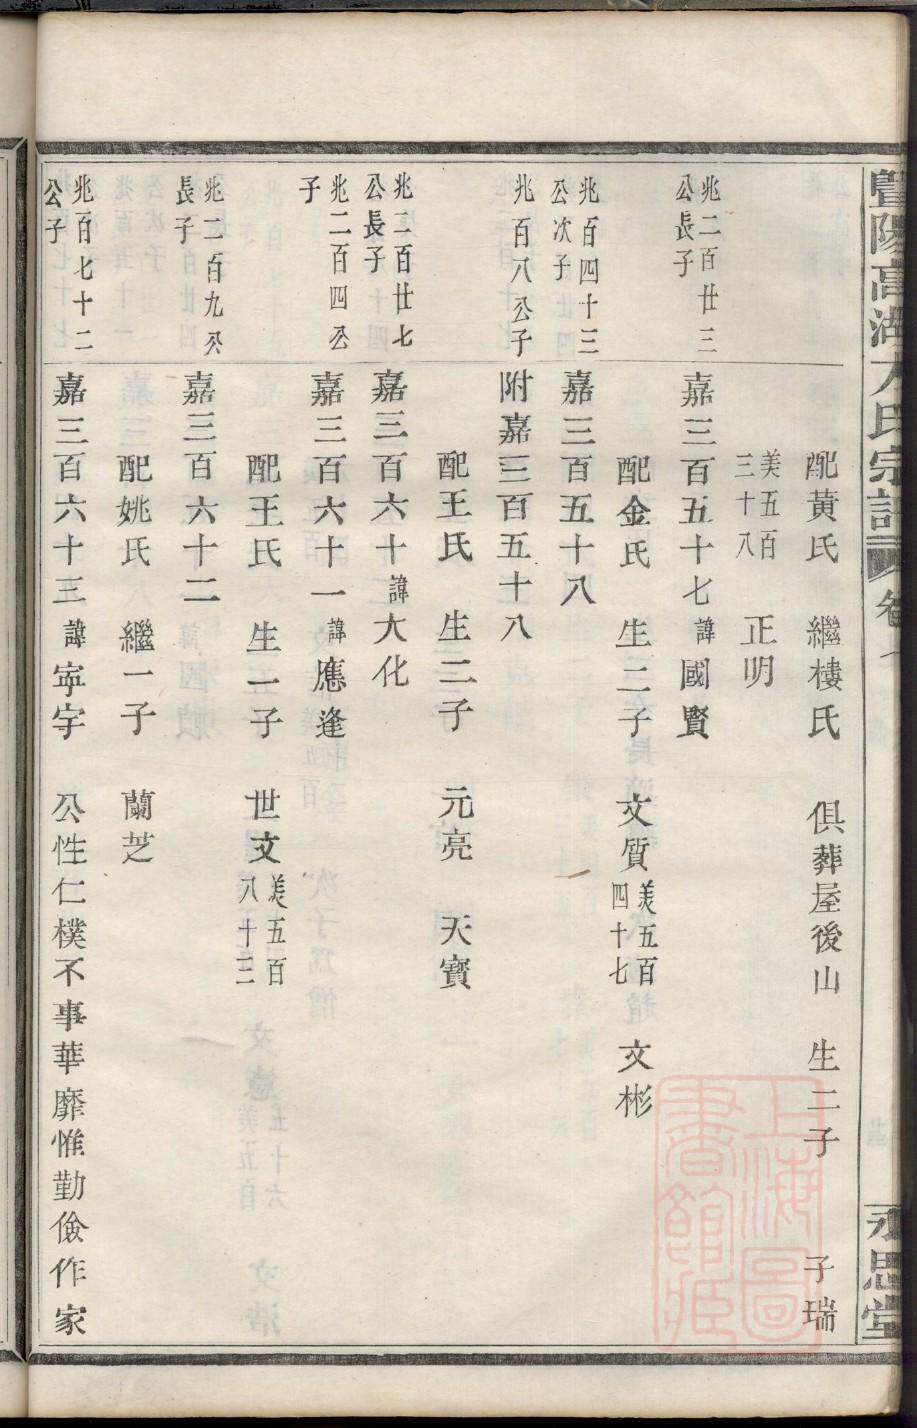 暨陽高湖方氏宗譜 卷
永思堂
配黃氏 繼樓氏 俱葬屋後山 生二子 子瑞
美五百三十八 正明
兆二百廿三公長子 嘉三百五十七諱國賢
配金氏 生二子 文質美五百四十七 文彬
兆百四十三公次子 嘉三百五十八
兆百八公子 附嘉三百五十八
配王氏 生二子 元亮 天寶
兆二百廿七公長子 嘉三百六十諱大化
兆二百四公子 嘉三百六十一諱應逢
配王氏 生一子 世文美五百八十二
兆二百九公長子 嘉三百六十二
配姚氏 繼一子 蘭芝
兆百七十二公子 嘉三百六十三諱寕宇 公性仁樸不事華靡惟勤儉作家
上海圖書館藏